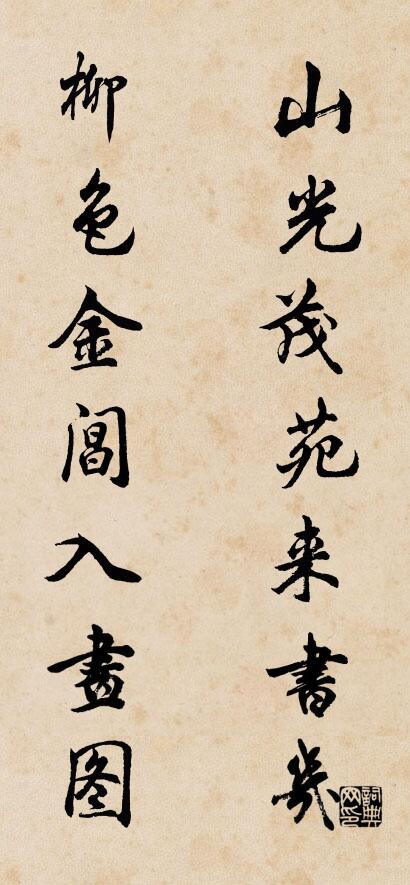 山光茂苑来書几
柳色金閶入畫图
詞典网印